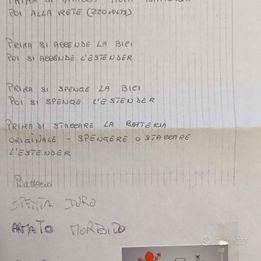 POI ALLA RETE (220 VOLTS)
PRIMA SI ACCENDE LA BICI
POI SI ACCENDE L'ESTENDER
PRIMA SI SPENGE LA BICI
POI SI SPENGE L'ESTENDER
PRIMA DI STACCARE LA BATTERIA
ORIGINALE - SPENGERE O STACCARE
L'ESTENDER
DURO
MORBIDO